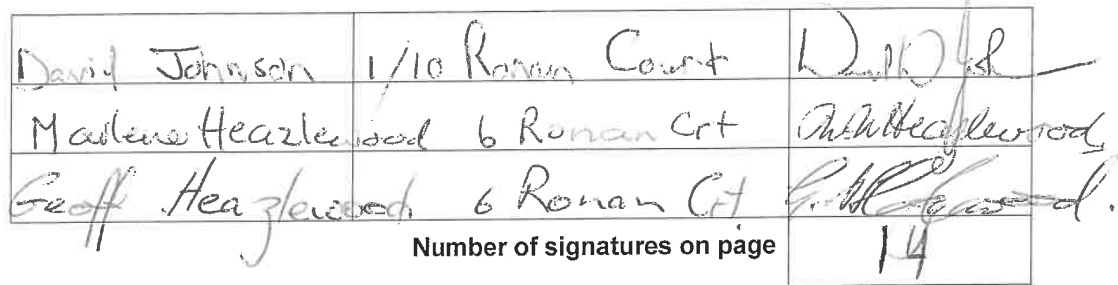 David Johnson 1/10 Ronan Court
Marlene Heazlewood 6 Ronan Crt M Heazlewood
Geoff Heazlewood 6 Ronan Crt
Number of signatures on page 14